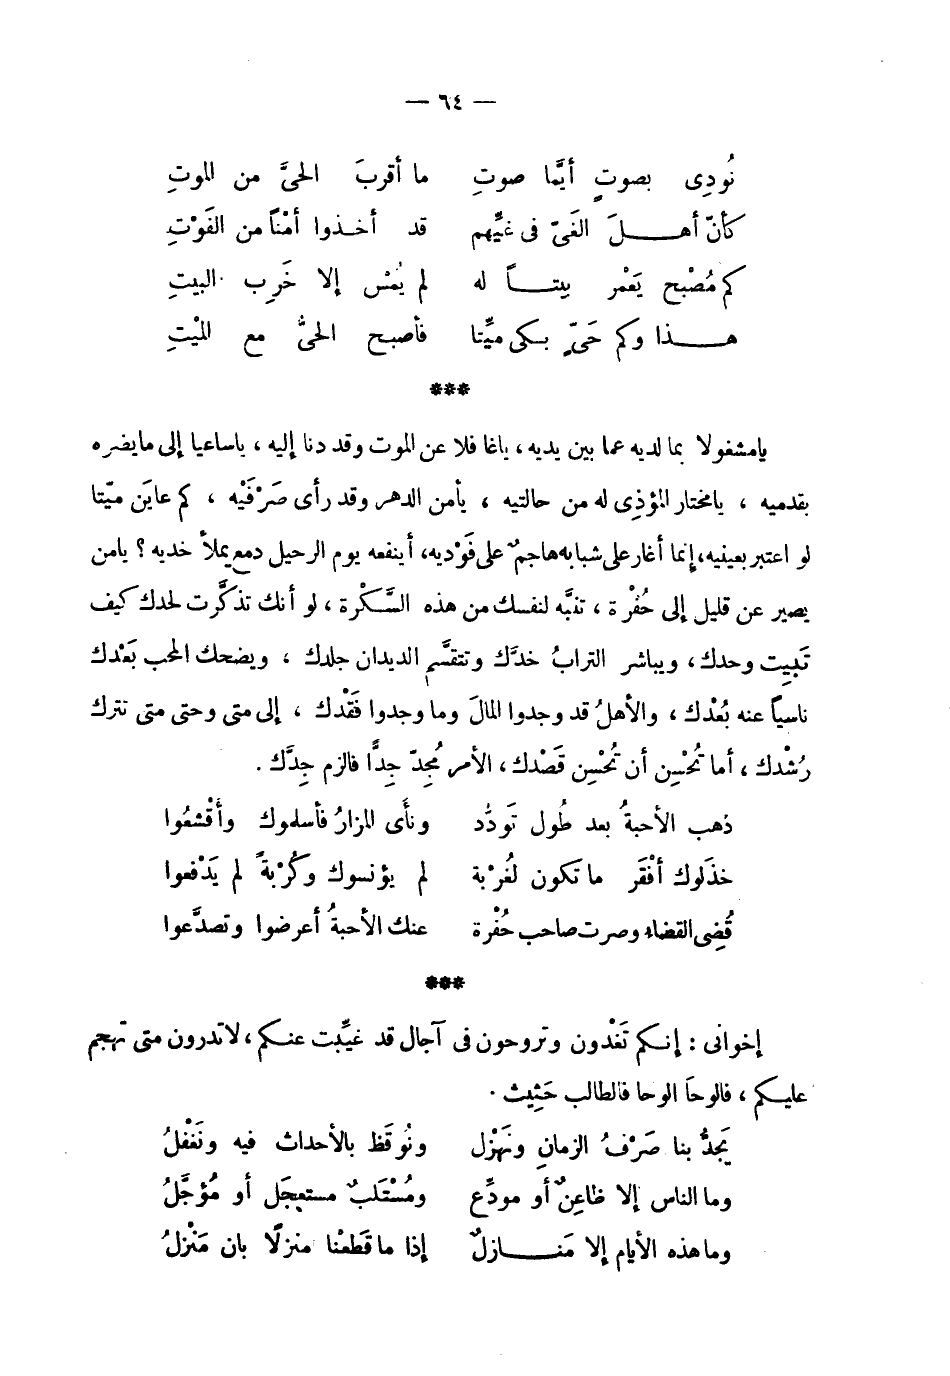 — ٦٤ —
نُودِى بصوتٍ أيَّما صوتِ ما أقربَ الحىَّ من الموتِ
كأنّ أهـــلَ الغَىّ فى غيِّهم قد أخـذوا أمْنًا من الفَوْتِ
كم مُصْبح يَعْمر بيتـــاً له لم يُمْس إلا خَرِب البيتِ
هـــذا وكم حَىّ بـكى ميِّتا فأصبح الحىُّ مع الميْتِ
***
يامشغولا بما لديه عما بين يديه ، ياغا فلا عن الموت وقد دنا إليه ، ياساعيا إلى مايضره
بقدميه ، يامختار المؤذِى له من حالتيه ، يأمن الدهر وقد رأى صَرْفَيْه ، كم عايَن ميّتا
لو اعتبر بعينيه، إنما أغار على شبابه هاجمٌ على فَوْديه، أينفعه يوم الرحيل دمع يملأ خديه ؟ يامن
يصير عن قليل إلى حُفْرة ، تنبَّه لنفسك من هذه السَّكْرة ، لو أنك تذكَّرت لحدك كيف
تَبِيت وحدك ، ويباشر الترابُ خدَّك وتتقسَّم الديدان جلدك ، ويضحك المحب بَعْدك
ناسياً عنه بُعْدك ، والأهلُ قد وجدوا المالَ وما وجدوا فَقْدك ، إلى متى وحتى متى تترك
رُشْدك ، أما تُحْسِن أن تُحْسِن قَصْدك ، الأمر مُجِدّ جِدًّا فالزم جِدَّك .
ذهب الأحبةُ بعد طُول تَودُّد ونأَى المزارُ فأسلموك وأَقْشعُوا
خذَلوك أفْقَر ما تكون لغُرْبة لم يؤنسوك وكُرْبةً لم يَدْفعوا
قُضِى القضاء وصرت صاحب حُفْرة عنك الأحبةُ أعرضوا وتصدَّعوا
***
إخوانى : إنـكم تَغْدون وتروحون فى آجال قد غيِّبت عنـكم ، لاتدرون متى تهجم
عليـكم ، فالوحَا الوحا فالطالب حَثِيث .
يَجدُّ بنا صَرْفُ الزمانِ ونَهْزل ونُوقَظ بالأحداث فيه ونَغْفلُ
وما الناس إلا ظاعِنٌ أو مودِّع ومُسْتَلبٌ مستعجَل أو مُؤجَّلُ
وما هذه الأيام إلا مَنـــازلٌ إذا ما قَطَعْنا منزلًا بان مَنْزلُ